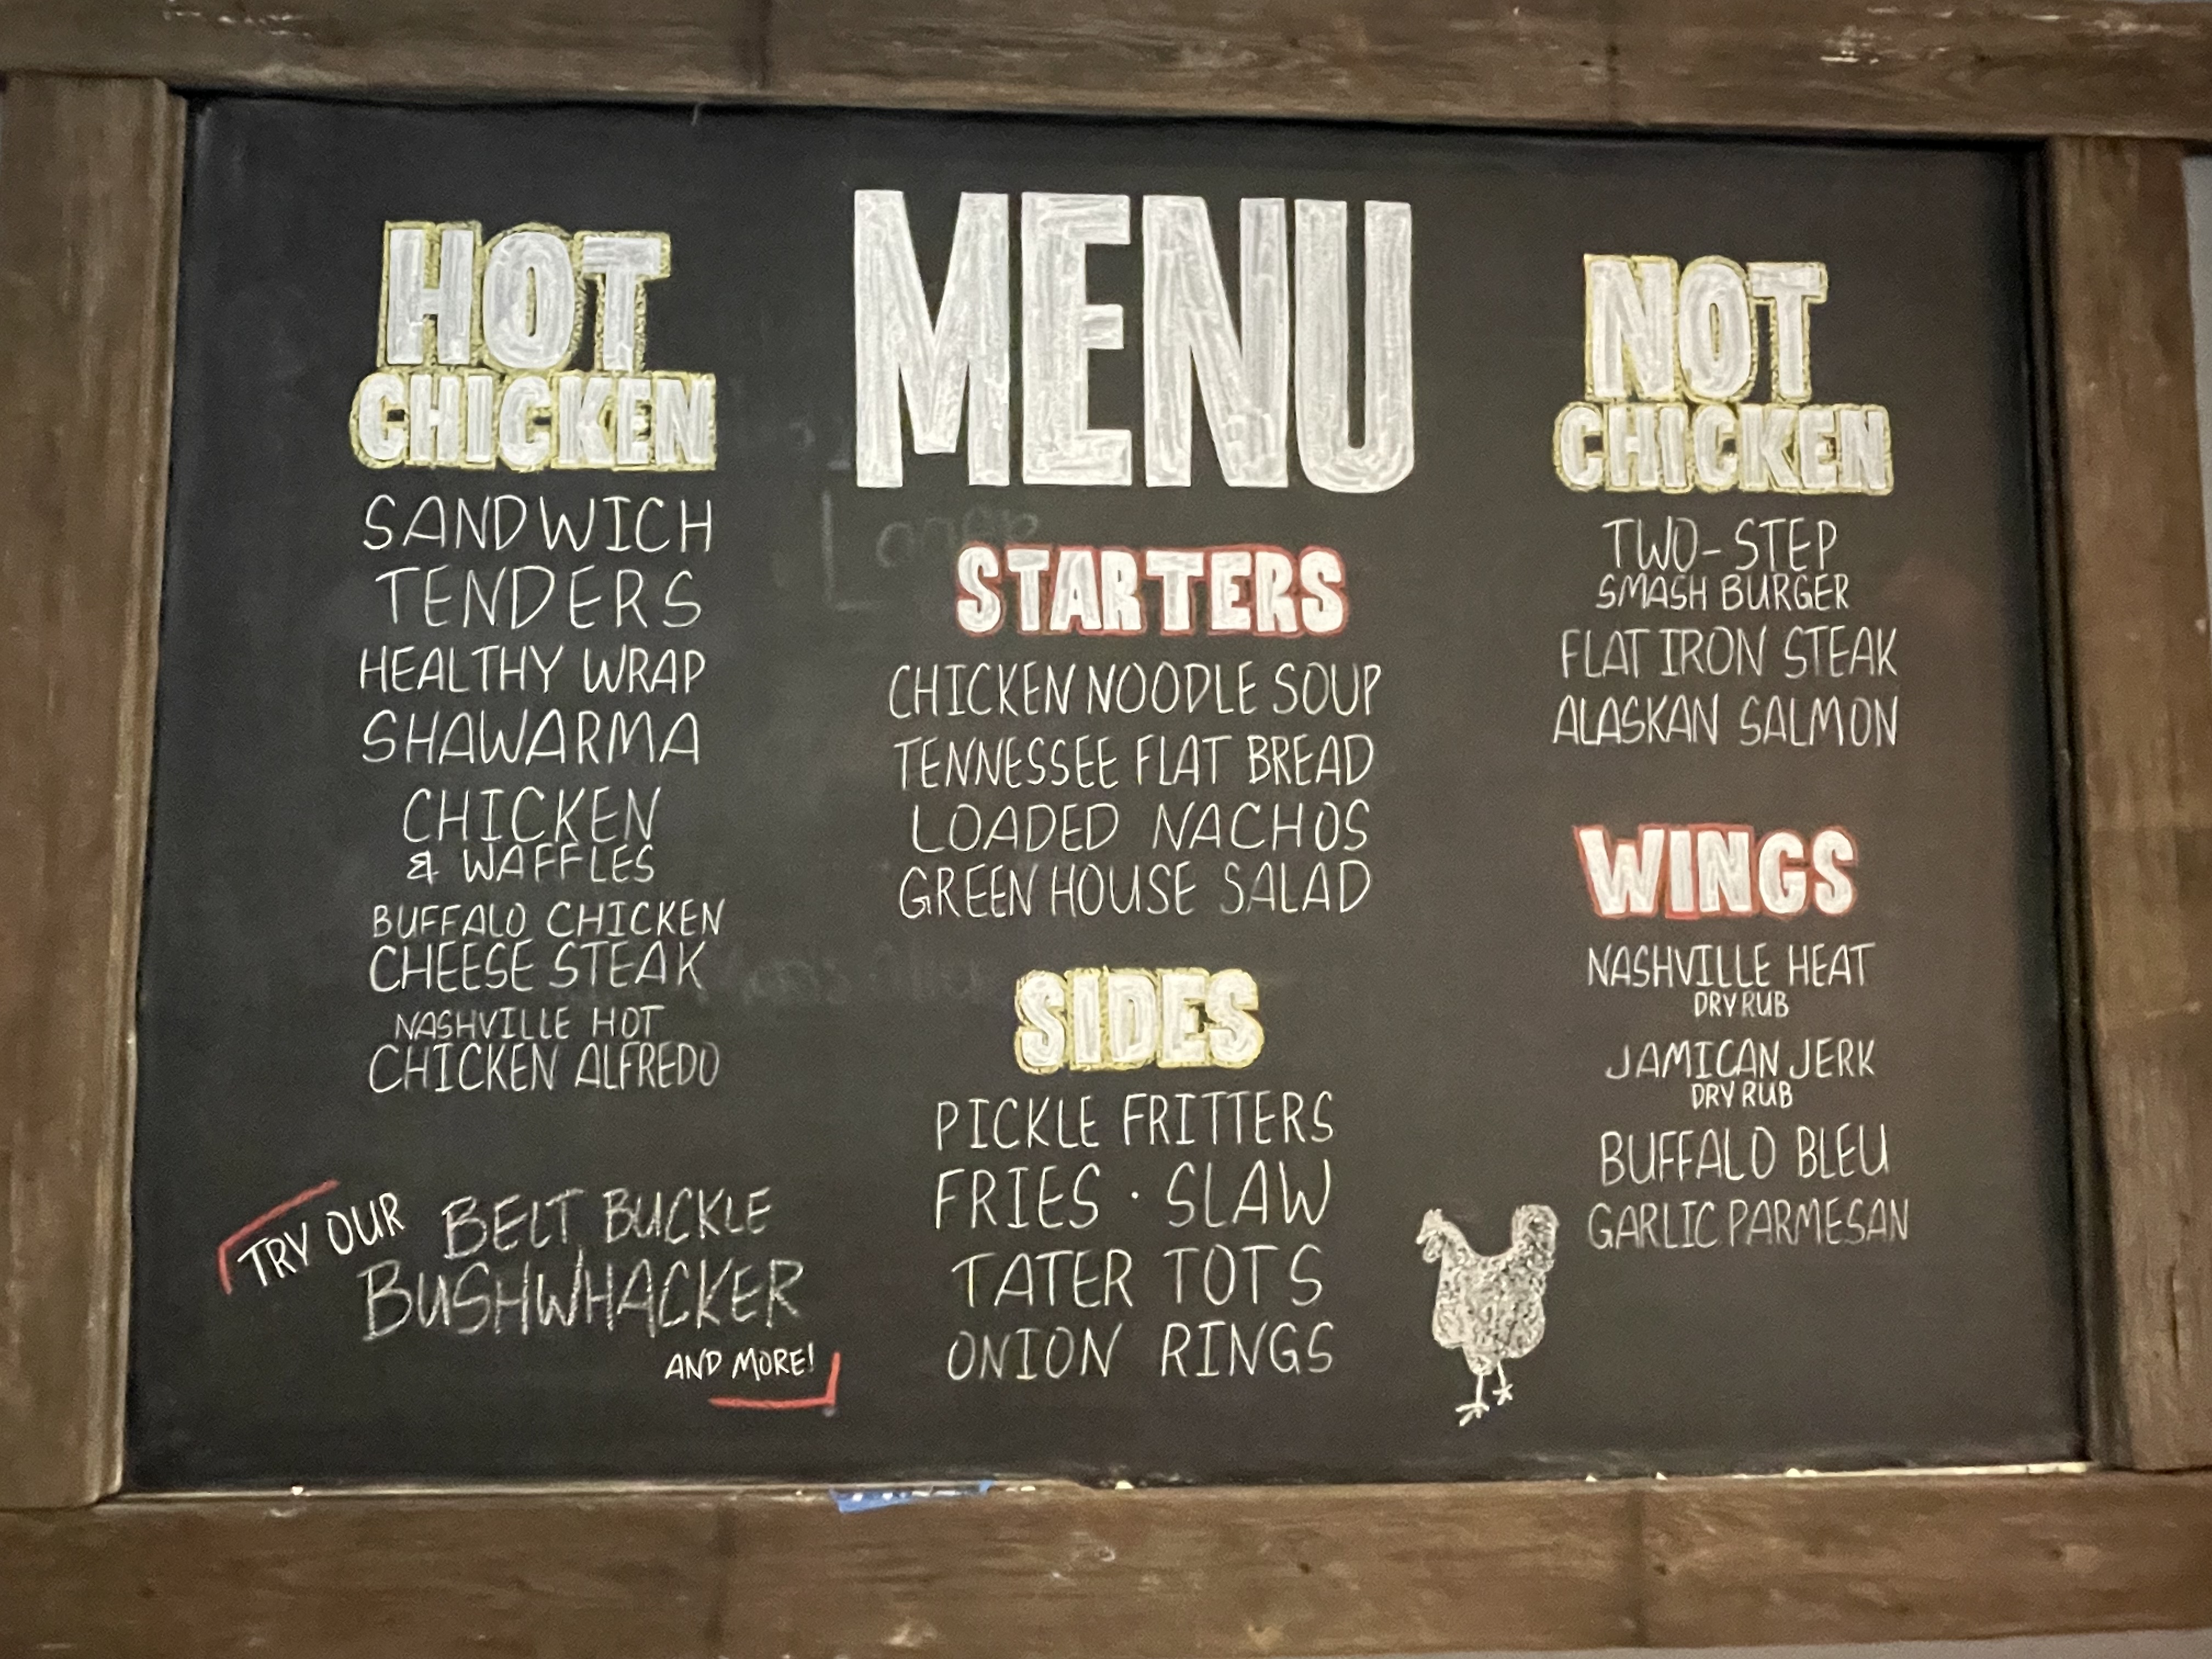 HOT
CHICKEN
SANDWICH
TENDERS
HEALTHY WRAP
SHAWARMA
CHICKEN
& WAFFLES
BUFFALO CHICKEN
CHEESE STEAK
NASHVILLE HOT
CHICKEN ALFREDO
TRY OUR BELT BUCKLE
BUSHWHACKER
AND MORE!
MENU
STARTERS
CHICKEN NOODLE SOUP
TENNESSEE FLAT BREAD
LOADED NACHOS
GREEN HOUSE SALAD
SIDES
PICKLE FRITTERS
FRIES · SLAW
TATER TOTS
ONION RINGS
NOT
CHICKEN
TWO-STEP
SMASH BURGER
FLAT IRON STEAK
ALASKAN SALMON
WINGS
NASHVILLE HEAT
DRY RUB
JAMICAN JERK
DRY RUB
BUFFALO BLEU
GARLIC PARMESAN